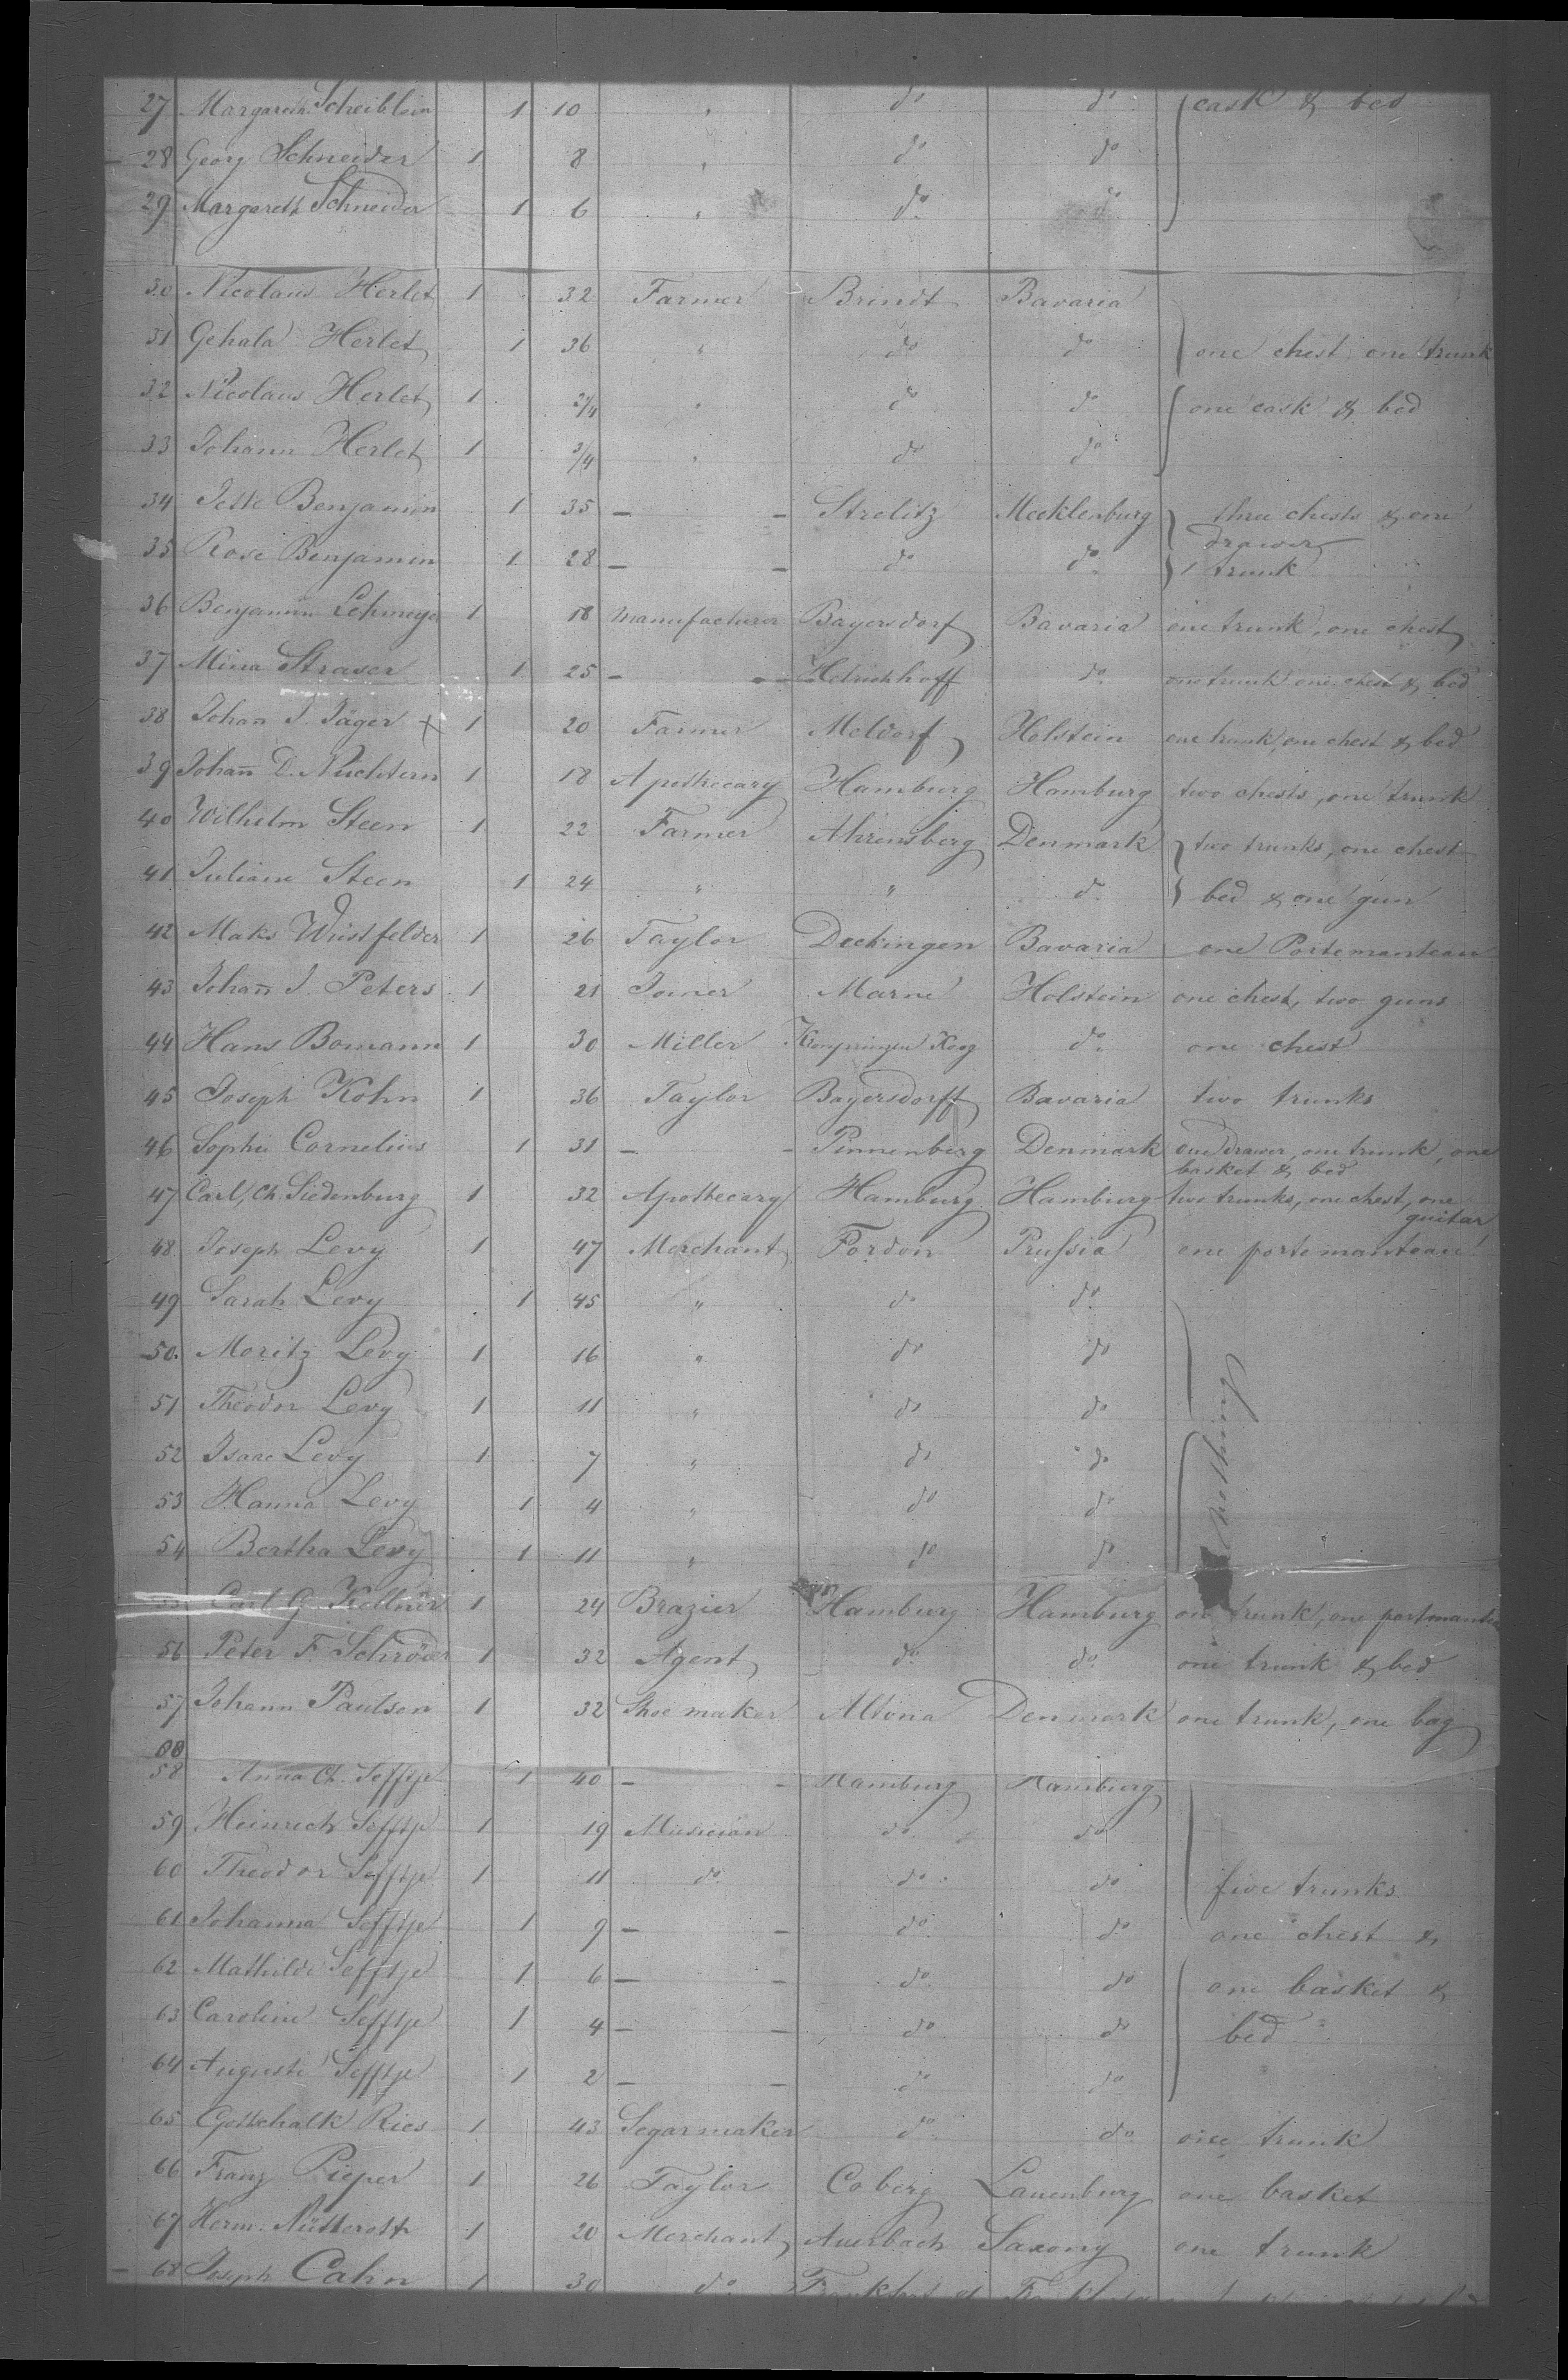 27 Margareth Scheiblein 1 10 " do do cask & bed
28 Georg Schneider 1 8 " do do
29 Margareth Schneider 1 6 " do do
30 Nicolaus Herlet 1 32 Farmer Brindt Bavaria
31 Gehala Herlet 1 36 " do do one chest, one trunk
32 Nicolaus Herlet 1 " do do one cask & bed
33 Johann Herlet 1 3/4 " do do
34 Jette Benjamin 1 35 — — Strelitz Mecklenburg three chests & one drawer
35 Rose Benjamin 1 28 — — do do 1 trunk
36 Benjamin Lehmeyer 1 18 Manufacturer Bayersdorf Bavaria one trunk, one chest
37 Mina Straser 1 25 — — do one trunk one chest & bed
38 Johan J. Jäger x 1 20 Farmer Meldorf Holstein one trunk, one chest & bed
39 Johan̄ D. Nüchtern 1 18 Apothecary Hamburg Hamburg two chests, one trunk
40 Wilhelm Steen 1 22 Farmer Ahrensberg Denmark two trunks, one chest
41 Juliane Steen 1 24 " " do bed & one gun
42 Maks Wüstfelder 1 26 Taylor Deckingen Bavaria one Portemanteau
43 Johan̄ J. Peters 1 21 Joiner Marne Holstein one chest, two guns
44 Hans Bomann 1 30 Miller Kronprinzen Koog do one chest
45 Joseph Kohn 1 36 Taylor Bayersdorff Bavaria two trunks
46 Sophie Cornelius 1 31 — — Pinnenberg Denmark one drawer, one trunk, one
basket & bed
47 Carl Ch. Siedenburg 1 32 Apothecary Hamburg Hamburg two trunks, one chest, one
guitar
48 Joseph Levy 1 47 Merchant Fordon Prussia one portemanteau
49 Sarah Levy 1 45 " do do
50. Moritz Levy 1 16 " do do
51 Theodor Levy 1 11 " do do
52 Isaac Levy 1 7 " do do
53 Hanna Levy 1 4 " do do
54 Bertha Levy 1 11 " do do
Nothing
55 Carl G. Kellner 1 24 Brazier Hamburg Hamburg one trunk, one portmanteau
56 Peter F. Schröder 1 32 Agent do do one trunk & bed
57 Johann Paulsen 1 32 Shoe maker Altona Denmark one trunk, one bag
58 Anna Ch. Sefftje 1 40 — — Hamburg Hamburg
59 Heinrich Sefftje 1 19 Musician do do
60 Theodor Sefftje 1 11 do do do five trunks
61 Johanna Sefftje 1 9 — — do do one chest &
62 Mathilde Sefftje 1 6 — — do do one basket &
63 Caroline Sefftje 1 4 — — do do bed
64 Auguste Sefftje 1 2 — — do do
65 Gottschalk Ries 1 43 Segarmaker do do one trunk
66 Franz Pieper 1 26 Taylor Coberg Lauenburg one basket
67 Herm. Nütteroth 1 20 Merchant Auerbach Saxony one trunk
68 Joseph Cahn 1 30 do Frankfort